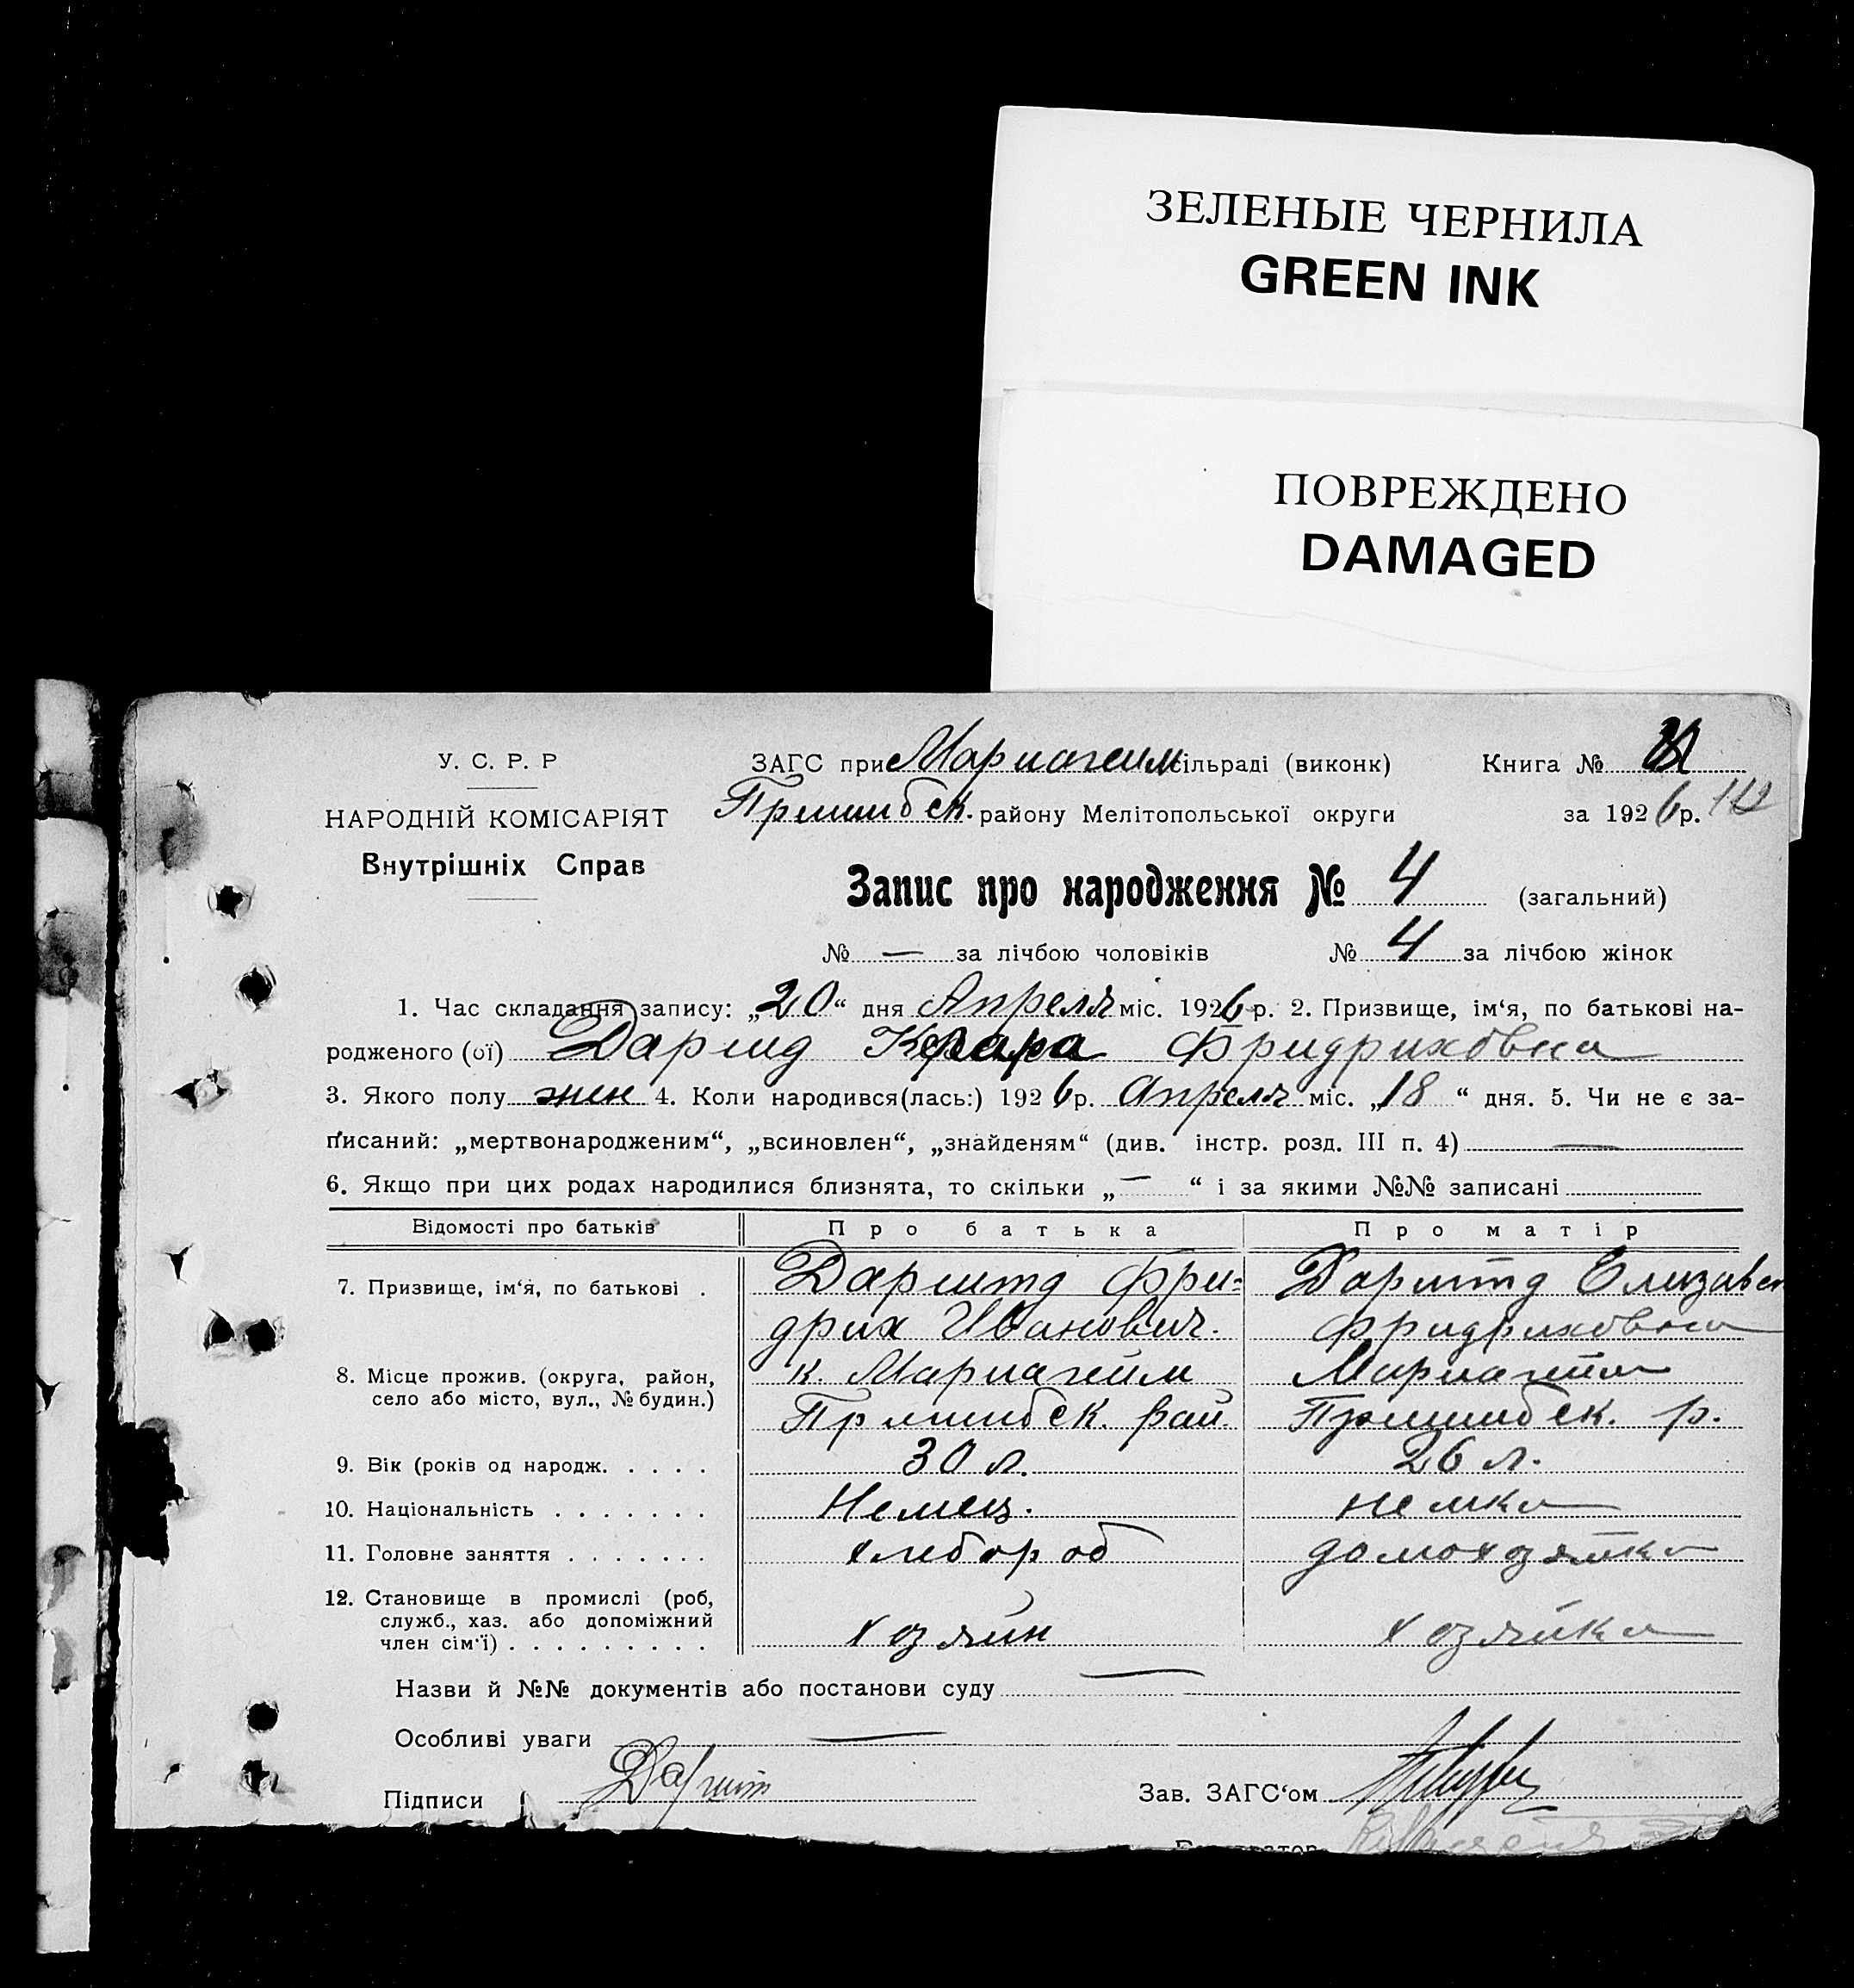 ЗЕЛЕНЫЕ ЧЕРНИЛА
GREEN INK
ПОВРЕЖДЕНО
DAMAGED
У. С. Р. Р
ЗАГС при Мариагеим сільраді (виконк) Книга №
Пришибск. району Мелітопольської округи за 1926 р.
НАРОДНІЙ КОМІСАРІЯТ
Внутрішніх Справ
Запис про народження № 4 (загальний)
№ — за лічбою чоловіків № 4 за лічбою жінок
1. Час складання запису: „20“ дня Апреля міс. 1926 р. 2. Призвище, ім‘я, по батькові на-
родженого (ої) Фридриховна
3. Якого полу жен 4. Коли народився(лась:) 1926 р. Апреля міс. „18“ дня. 5. Чи не є за-
писаний: „мертвонародженим“, „всиновлен“, „знайденям“ (див. інстр. розд. III п. 4) —
6. Якщо при цих родах народилися близнята, то скільки „—“ і за якими №№ записані
Відомості про батьків Про батька Про матір
7. Призвище, ім‘я, по батькові . Дармтд Фри- Дармтд Елизавет
дрих Иванович. Фридриховна
8. Місце прожив. (округа, район, к. Мариагейм Мариагейм
село або місто, вул., № будин.) Пришибск. рай. Пришибск. р.
9. Вік (років од народж. . . . . 30 л. 26 л.
10. Національність . . . . . . . Немец. немка
11. Головне заняття . . . . . . . хлебороб домохозяйка
12. Становище в промислі (роб,
служб., хаз. або допоміжний
член сім‘ї) . . . . . . . . . хозяин хозяйка
Назви й №№ документів або постанови суду —
Особливі уваги —
Підписи Зав. ЗАГС‘ом